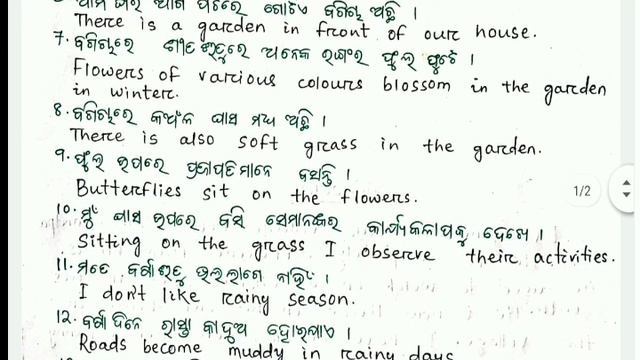 ଆମ ଘର ଆଗ ପଟରେ ଗୋଟିଏ ବଗିଚା ଅଛି ।
There is a garden in front of our house.
7. ବଗିଚାରେ ଶୀତଋତୁରେ ଅନେକ ରଙ୍ଗର ଫୁଲ ଫୁଟେ ।
Flowers of various colours blossom in the garden
in winter.
8. ବଗିଚାରେ କଅଁଳ ଘାସ ମଧ୍ୟ ଅଛି ।
There is also soft grass in the garden.
୨. ଫୁଲ ଉପରେ ପ୍ରଜାପତିମାନେ ବସନ୍ତି ।
Butterflies sit on the flowers.
1/2
10. ମୁଁ ଘାସ ଉପରେ ବସି ସେମାନଙ୍କର କାର୍ଯ୍ୟକଳାପକୁ ଦେଖେ ।
Sitting on the grass I observe their activities.
11. ମତେ ବର୍ଷାଋତୁ ଭଲଲାଗେ ନାହିଁ ।
I don't like rainy season.
12. ବର୍ଷା ଦିନେ ରାସ୍ତା କାଦୁଅ ହୋଇଯାଏ ।
Roads become muddy in rainy days